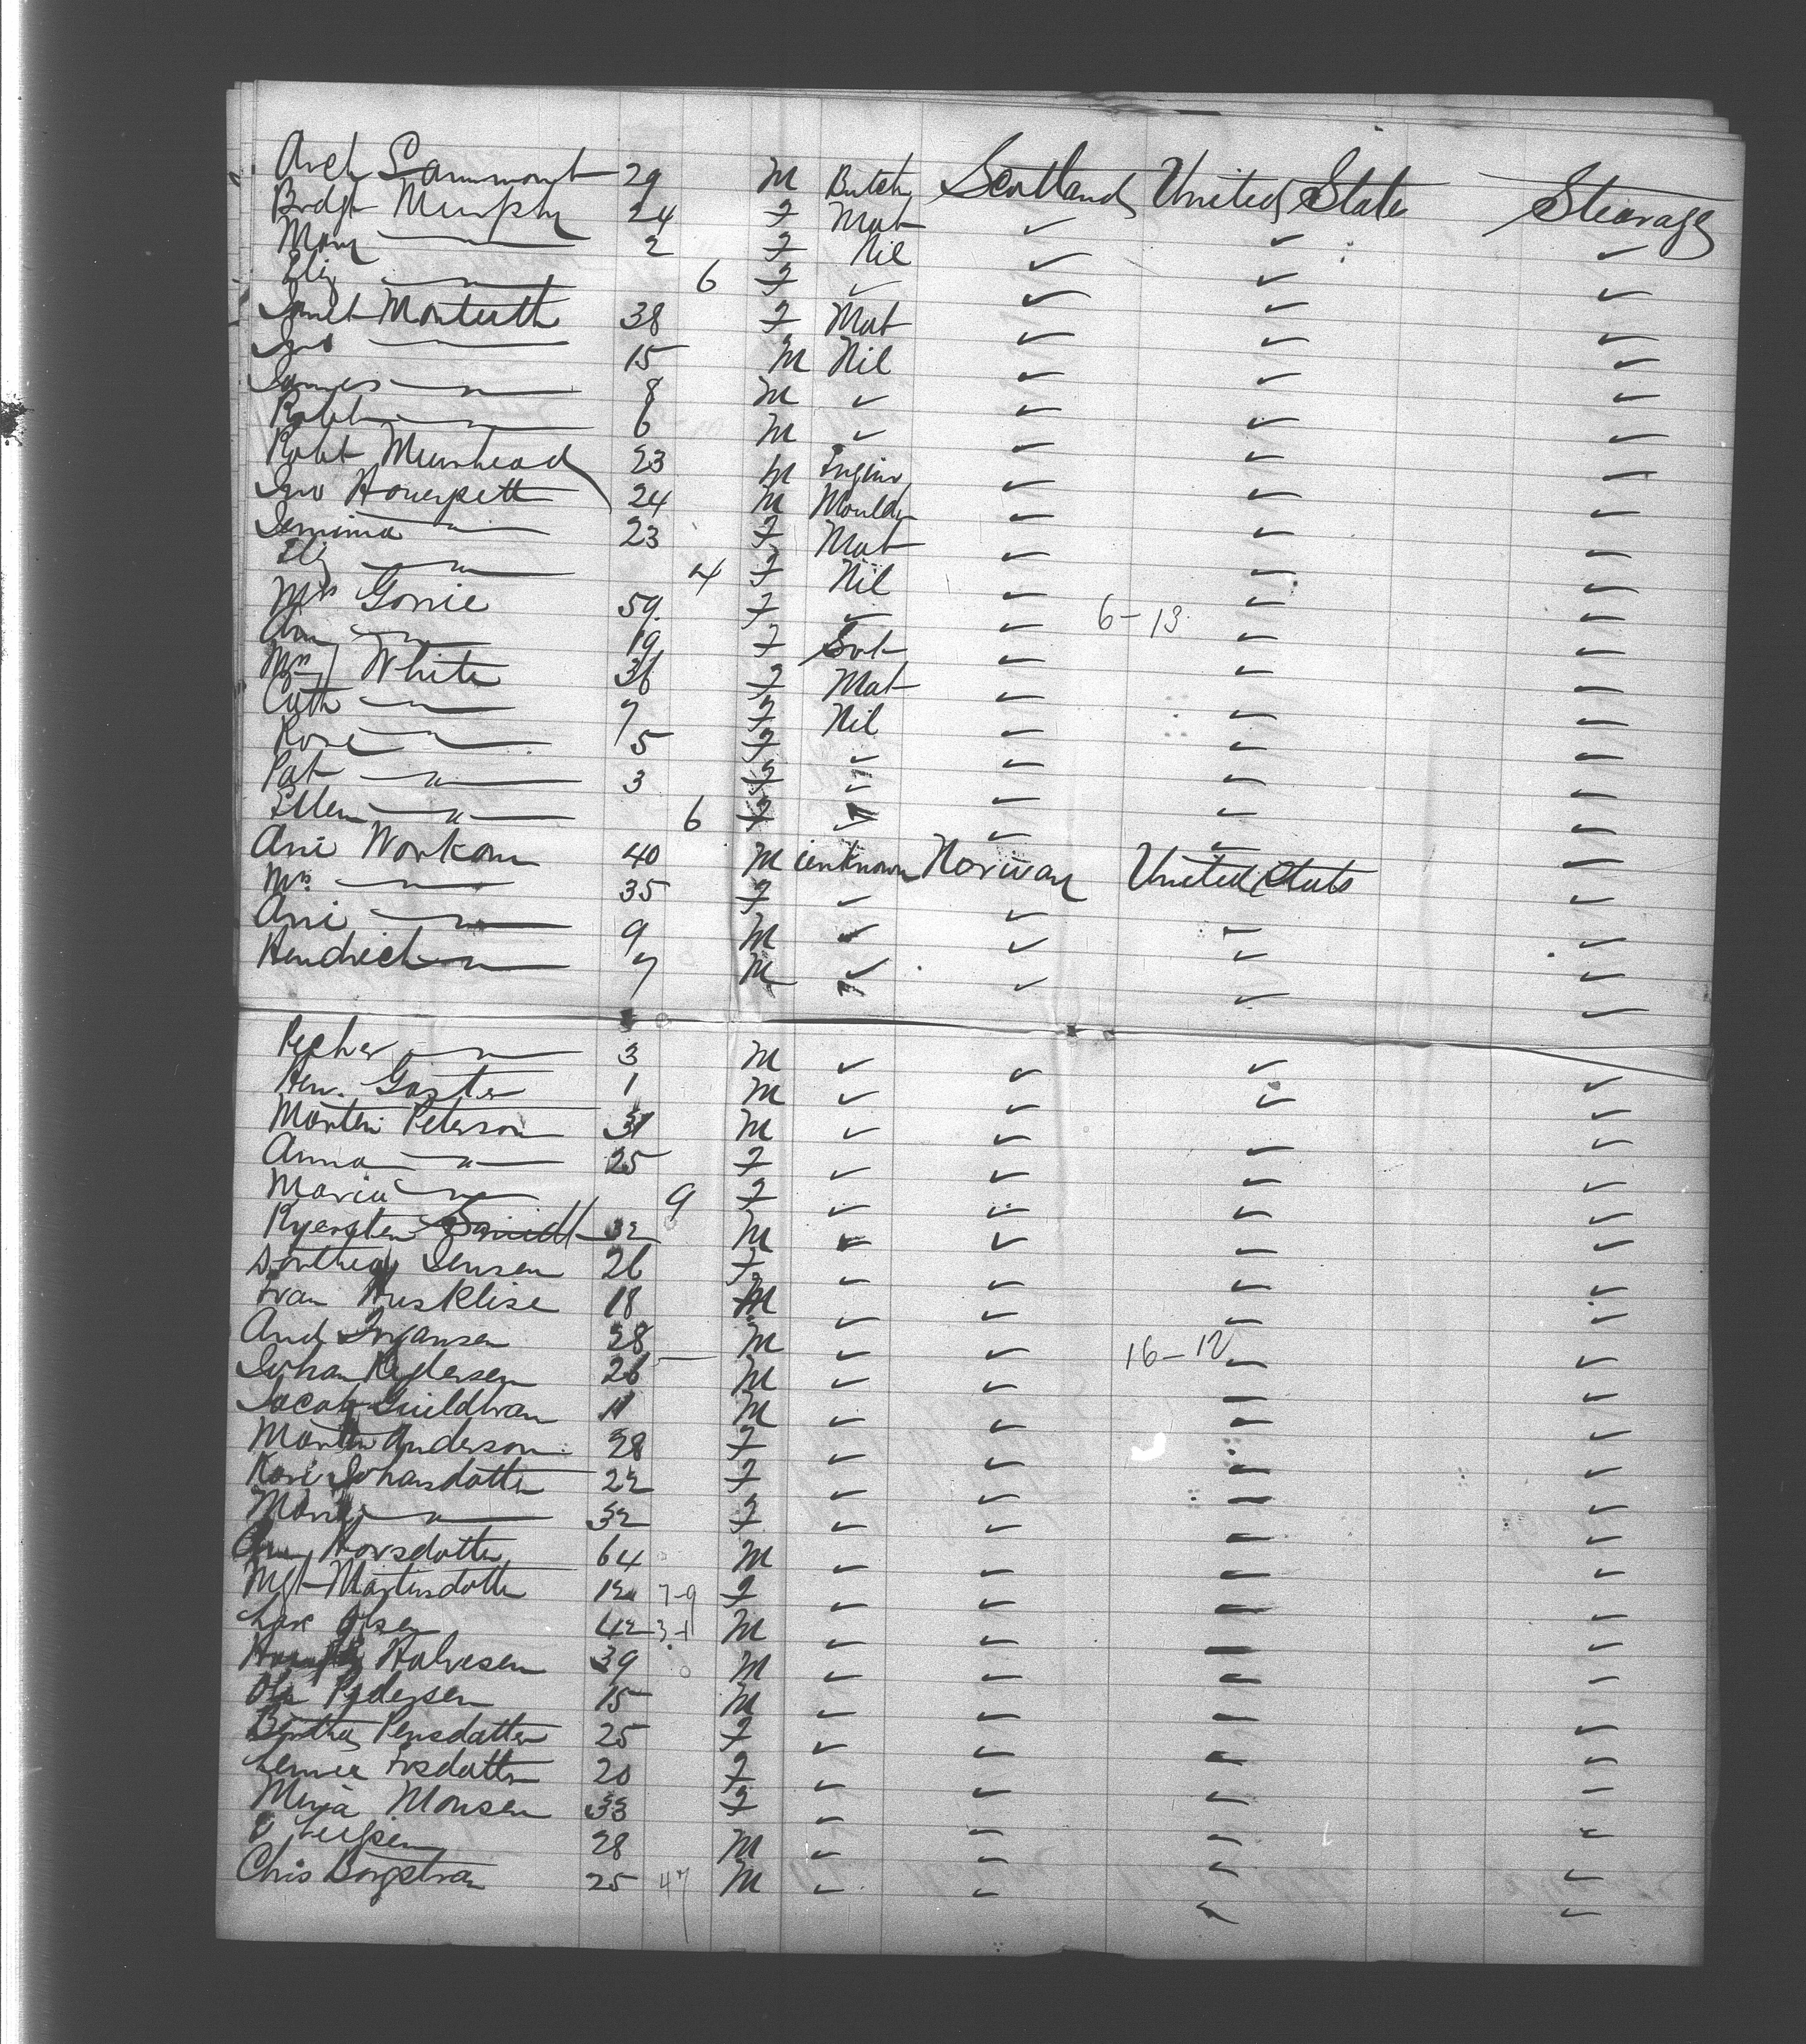 Arch Lammont 29 M Butch Scotland United State Stearage
Bridgt Murphy 24 F Mat ✓ ✓ ✓
Mary —〃— 2 F Nil ✓ ✓ ✓
Eliz —〃— 6 F ✓ ✓ ✓ ✓
Janet Monteith 38 F Mat ✓ ✓ ✓
Jno —〃— 15 M Nil ✓ ✓ ✓
James —〃— 8 M ✓ ✓ ✓ ✓
Robt —〃— 6 M ✓ ✓ ✓ ✓
Robt Muirhead 23 M Engin ✓ ✓ ✓
Jno 24 M Mouldr ✓ ✓ ✓
Jemima —〃— 23 F Mat ✓ ✓ ✓
Eliz —〃— 4 F Nil ✓ ✓ ✓
Mrs Gorrie 59 F ✓ ✓ 6-13 ✓ ✓
Ann —〃— 19 F Svt ✓ ✓ ✓
Mrs White 36 F Mat ✓ ✓ ✓
Cath —〃— 7 F Nil ✓ ✓ ✓
Rose —〃— 5 F ✓ ✓ ✓ ✓
Pat —〃— 3 F ✓ ✓ ✓ ✓
Ellen —〃— 6 F ✓ ✓ ✓ ✓
Ani Workom 40 M unknown Norway United Stats ✓
Mrs —〃— 35 F ✓ ✓ ✓ ✓
Ani —〃— 9 M ✓ ✓ ✓ ✓
Hendrich —〃— 7 M ✓ ✓ ✓ ✓
Pepher —〃— 3 M ✓ ✓ ✓ ✓
Hen. Gaster 1 M ✓ ✓ ✓ ✓
Morten Peterson 31 M ✓ ✓ ✓ ✓
Anna —〃— 25 F ✓ ✓ ✓ ✓
Maria —〃— 9 F ✓ ✓ ✓ ✓
Kyersten Smidt 32 M ✓ ✓ ✓ ✓
Dorthea Jensen 26 F ✓ ✓ ✓ ✓
Ivan Husklise 18 M ✓ ✓ ✓ ✓
And 28 M ✓ ✓ 16-12 ✓ ✓
Johan Pedersen 26 M ✓ ✓ ✓ ✓
Jacob Guildbran 11 M ✓ ✓ ✓ ✓
Anderson 28 F ✓ ✓ ✓ ✓
Kari Johansdatter 22 F ✓ ✓ ✓ ✓
—〃— 32 F ✓ ✓ ✓ ✓
64 M ✓ ✓ ✓ ✓
Mgt Martinsdotter 12 7-9 F ✓ ✓ ✓ ✓
Lars Olsen 42 3-1 M ✓ ✓ ✓ ✓
Halvesen 39 M ✓ ✓ ✓ ✓
Ole Pedersen 15 M ✓ ✓ ✓ ✓
Bertha Pensdatter 25 F ✓ ✓ ✓ ✓
20 F ✓ ✓ ✓ ✓
Monsen 33 F ✓ ✓ ✓ ✓
28 M ✓ ✓ ✓ ✓
Chris Borgstran 25 47 M ✓ ✓ ✓ ✓